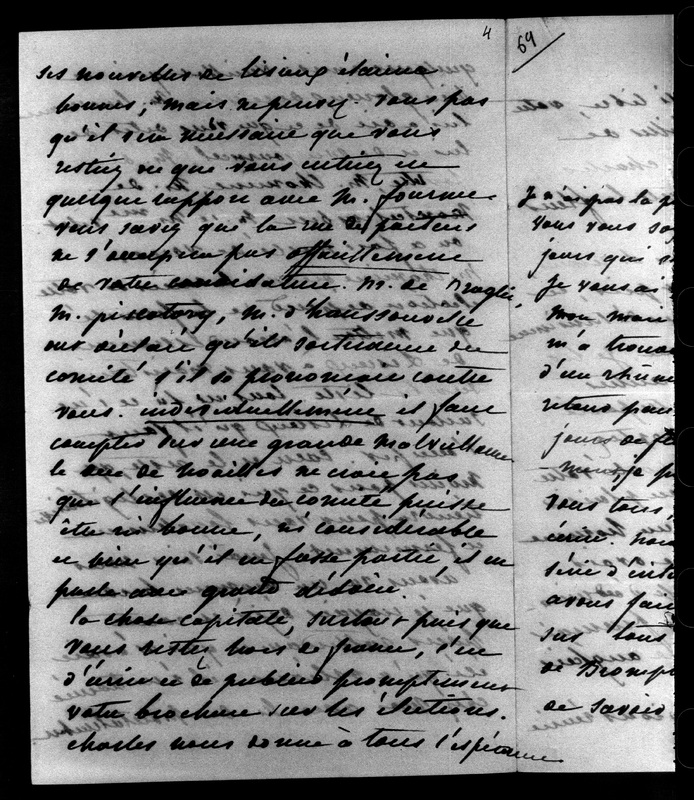 4
69
Les nouvelles de Lisieux étaient
bonnes, mais ne pensez-vous pas
qu'il soit nécessaire que vous
restiez ou que vous entriez en
quelque rapport avec M.
vous savez que la rue de poitiers
ne s'occupera pas officiellement
de votre candidature. M. de Broglie,
M. piscatory, M. d'haussonville
ont déclaré qu'ils sortiraient du
comité s'il se prononçait contre
vous. individuellement il faut
compter sur une grande malveillance
le duc de Noailles ne croit pas
que l'influence du comité puisse
être ni bonne, ni considérable
et bien qu'il en fasse partie, il en
parle avec grand dédain.
la chose capitale, surtout puisque
vous restez hors de france, c'est
d'écrire et de publier promptement
votre brochure sur les élections.
charles nous donne à tous l'espérance
Je n'ai pas la p
vous vous so
jours qui s
Je vous ai
mon mari
m'a trouv
d'un rhume
retous pou
jours de f
vous tous,
écrire.
avous fair
sus tous
de Brompt
de savoir